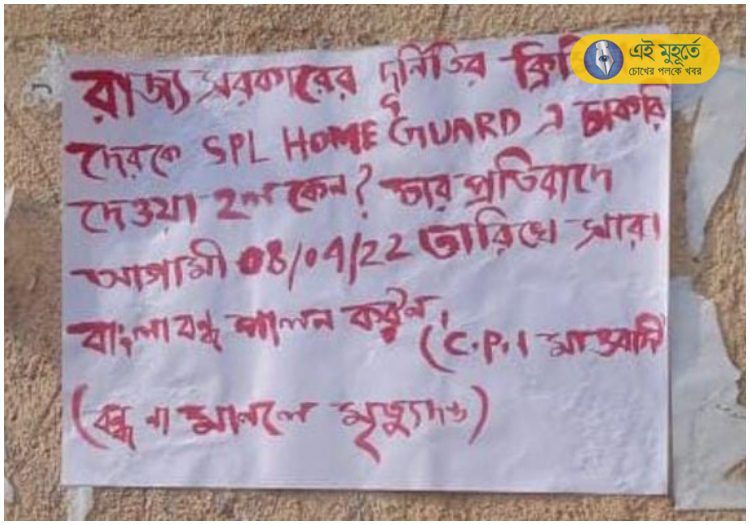 এই মুহূর্তে
চোখের পলকে খবর
রাজ্য সরকারের দুর্নিতির
দেরকে SPL HOME GUARD এ চাকরি
দেওয়া হল কেন? তার প্রতিবাদে
আগামী 08/04/22 তারিখে সারা
বাংলা বন্ধ পালন করুন,
(C.P.I মাওবাদি
(বন্ধ না মানলে মৃত্যুদণ্ড)